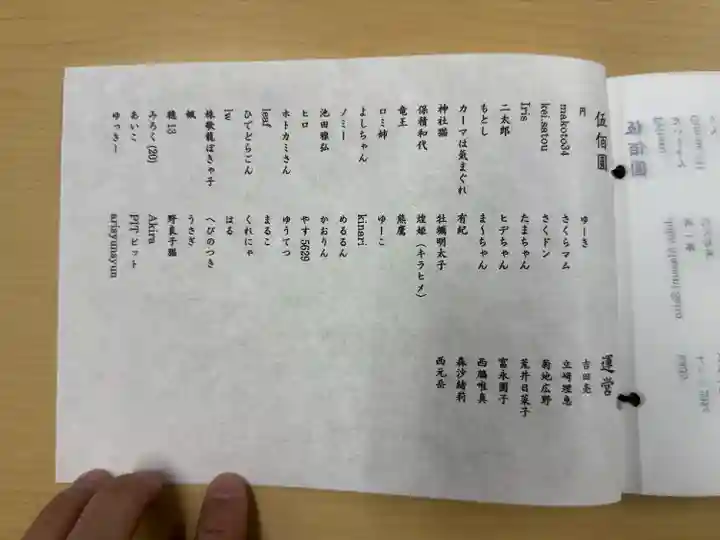 伍佰圓
円
makoto34
kei.satou
Iris
二太郎
もとし
カーマは気まぐれ
神社猫
保積和代
竜王
ロミ姉
よしちゃん
ノミー
池田雅弘
ヒロ
ホトカミさん
leaf
ひでどらごん
iw
株敬龍ぽきゃ子
楓
聴 13
みろく(20)
あいこ
ゆっきー
ゆーき
さくらマム
さくドン
たまちゃん
ヒデちゃん
ま〜ちゃん
有紀
牡蠣明太子
煌姫(キラヒメ)
熊鷹
ゆーこ
kinari
めるるん
かおりん
やす5629
ゆうてつ
まるこ
くれにゃ
ぱる
へびのつき
うさぎ
野良子猫
Akira
PITピット
arisyunayun
運営
吉田亮
立崎理恵
菊地広野
荒井日菜子
富永園子
西脇唯真
森沙緒莉
西元岳
伍佰圓